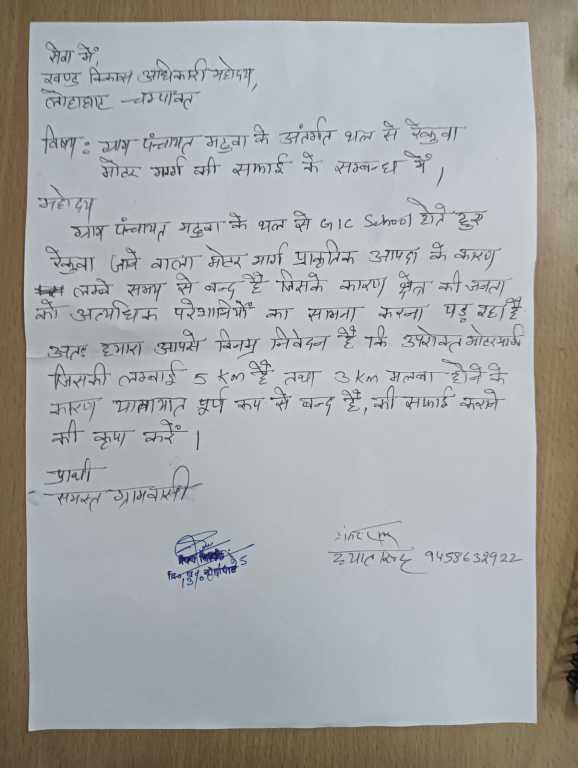 सेवा में,
खण्ड विकास अधिकारी महोदय,
लोहाघाट - चम्पावत
विषय: ग्राम पंचायत मडुवा के अंतर्गत थल से रेकुवा
मोटर मार्ग की सफाई के सम्बन्ध में,
महोदय
ग्राम पंचायत मडुवा के थल से GIC School होते हुए
रेकुवा जाने वाला मोटर मार्ग प्राकृतिक आपदा के कारण
लम्बे समय से बन्द है जिसके कारण क्षेत्र की जनता
को अत्यधिक परेशानियों का सामना करना पड़ रहा है
अतः हमारा आपसे विनम्र निवेदन है कि उपरोक्त मोटरमार्ग
जिसकी लम्बाई 5 km है तथा 3 km मलबा होने के
कारण यातायात पूर्ण रूप से बन्द है, की सफाई करने
की कृपा करें।
प्रार्थी
- समस्त ग्रामवासी
9458632922